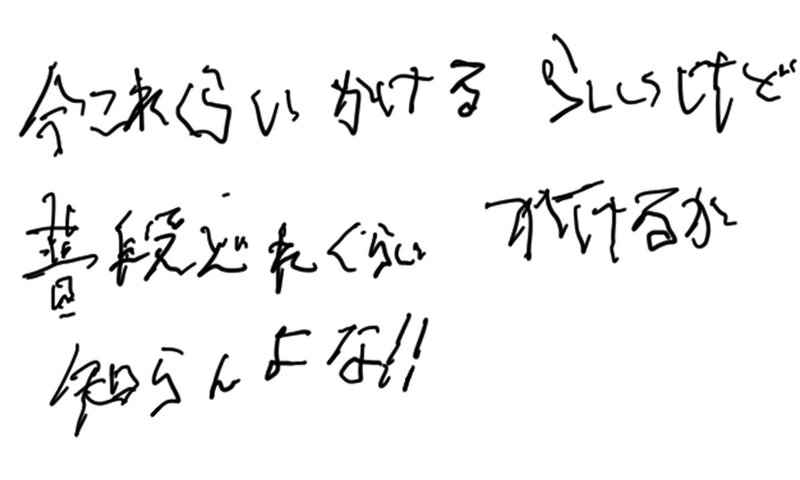 今これくらいかけるらしいけど
普段どれくらいかけるか
知らんよな!!